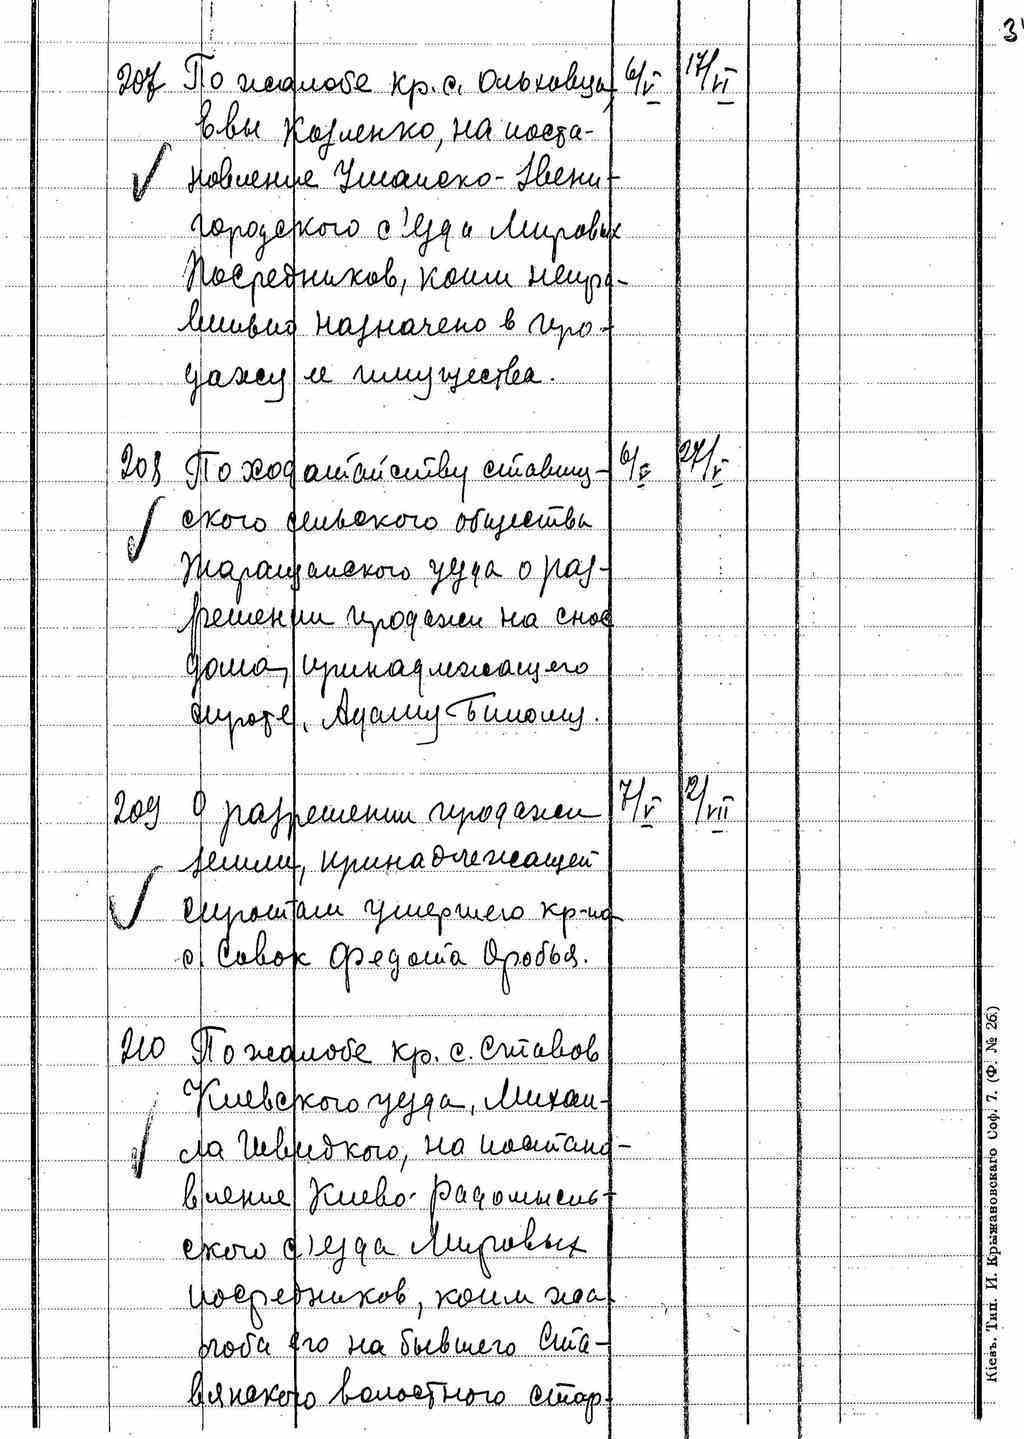 207 По жалобе кр. с. Ольховца, 6/V 17/VI
Еввы Козленко, на поста-
новление Уманско-Звени-
городского с'езда Мировых
Посредников, коим непра-
вильно назначено в про-
дажу ее имущества.
208 По ходатайству ставищ- 6/V 27/V
ского сельского общества
Таращанского уезда о раз-
решении продажи на снос
дома, принадлежащего
сироте, Адаму Билому.
209 О разрешении продажи 7/V 2/VII
земли, принадлежащей
сиротам умершего кр-на
с. Совок Федота Оробья.
210 По жалобе кр. с. Ставов
Киевского уезда, Михаи-
ла Швидкого, на постано-
вление Киево-Радомысль-
ского с'езда Мировых
посредников, коим жа-
лоба его на бывшего Ста-
вянского волостного стар-
Кіевъ. Тип. И. Крыжановскаго Соф. 7. (Ф. № 26.)